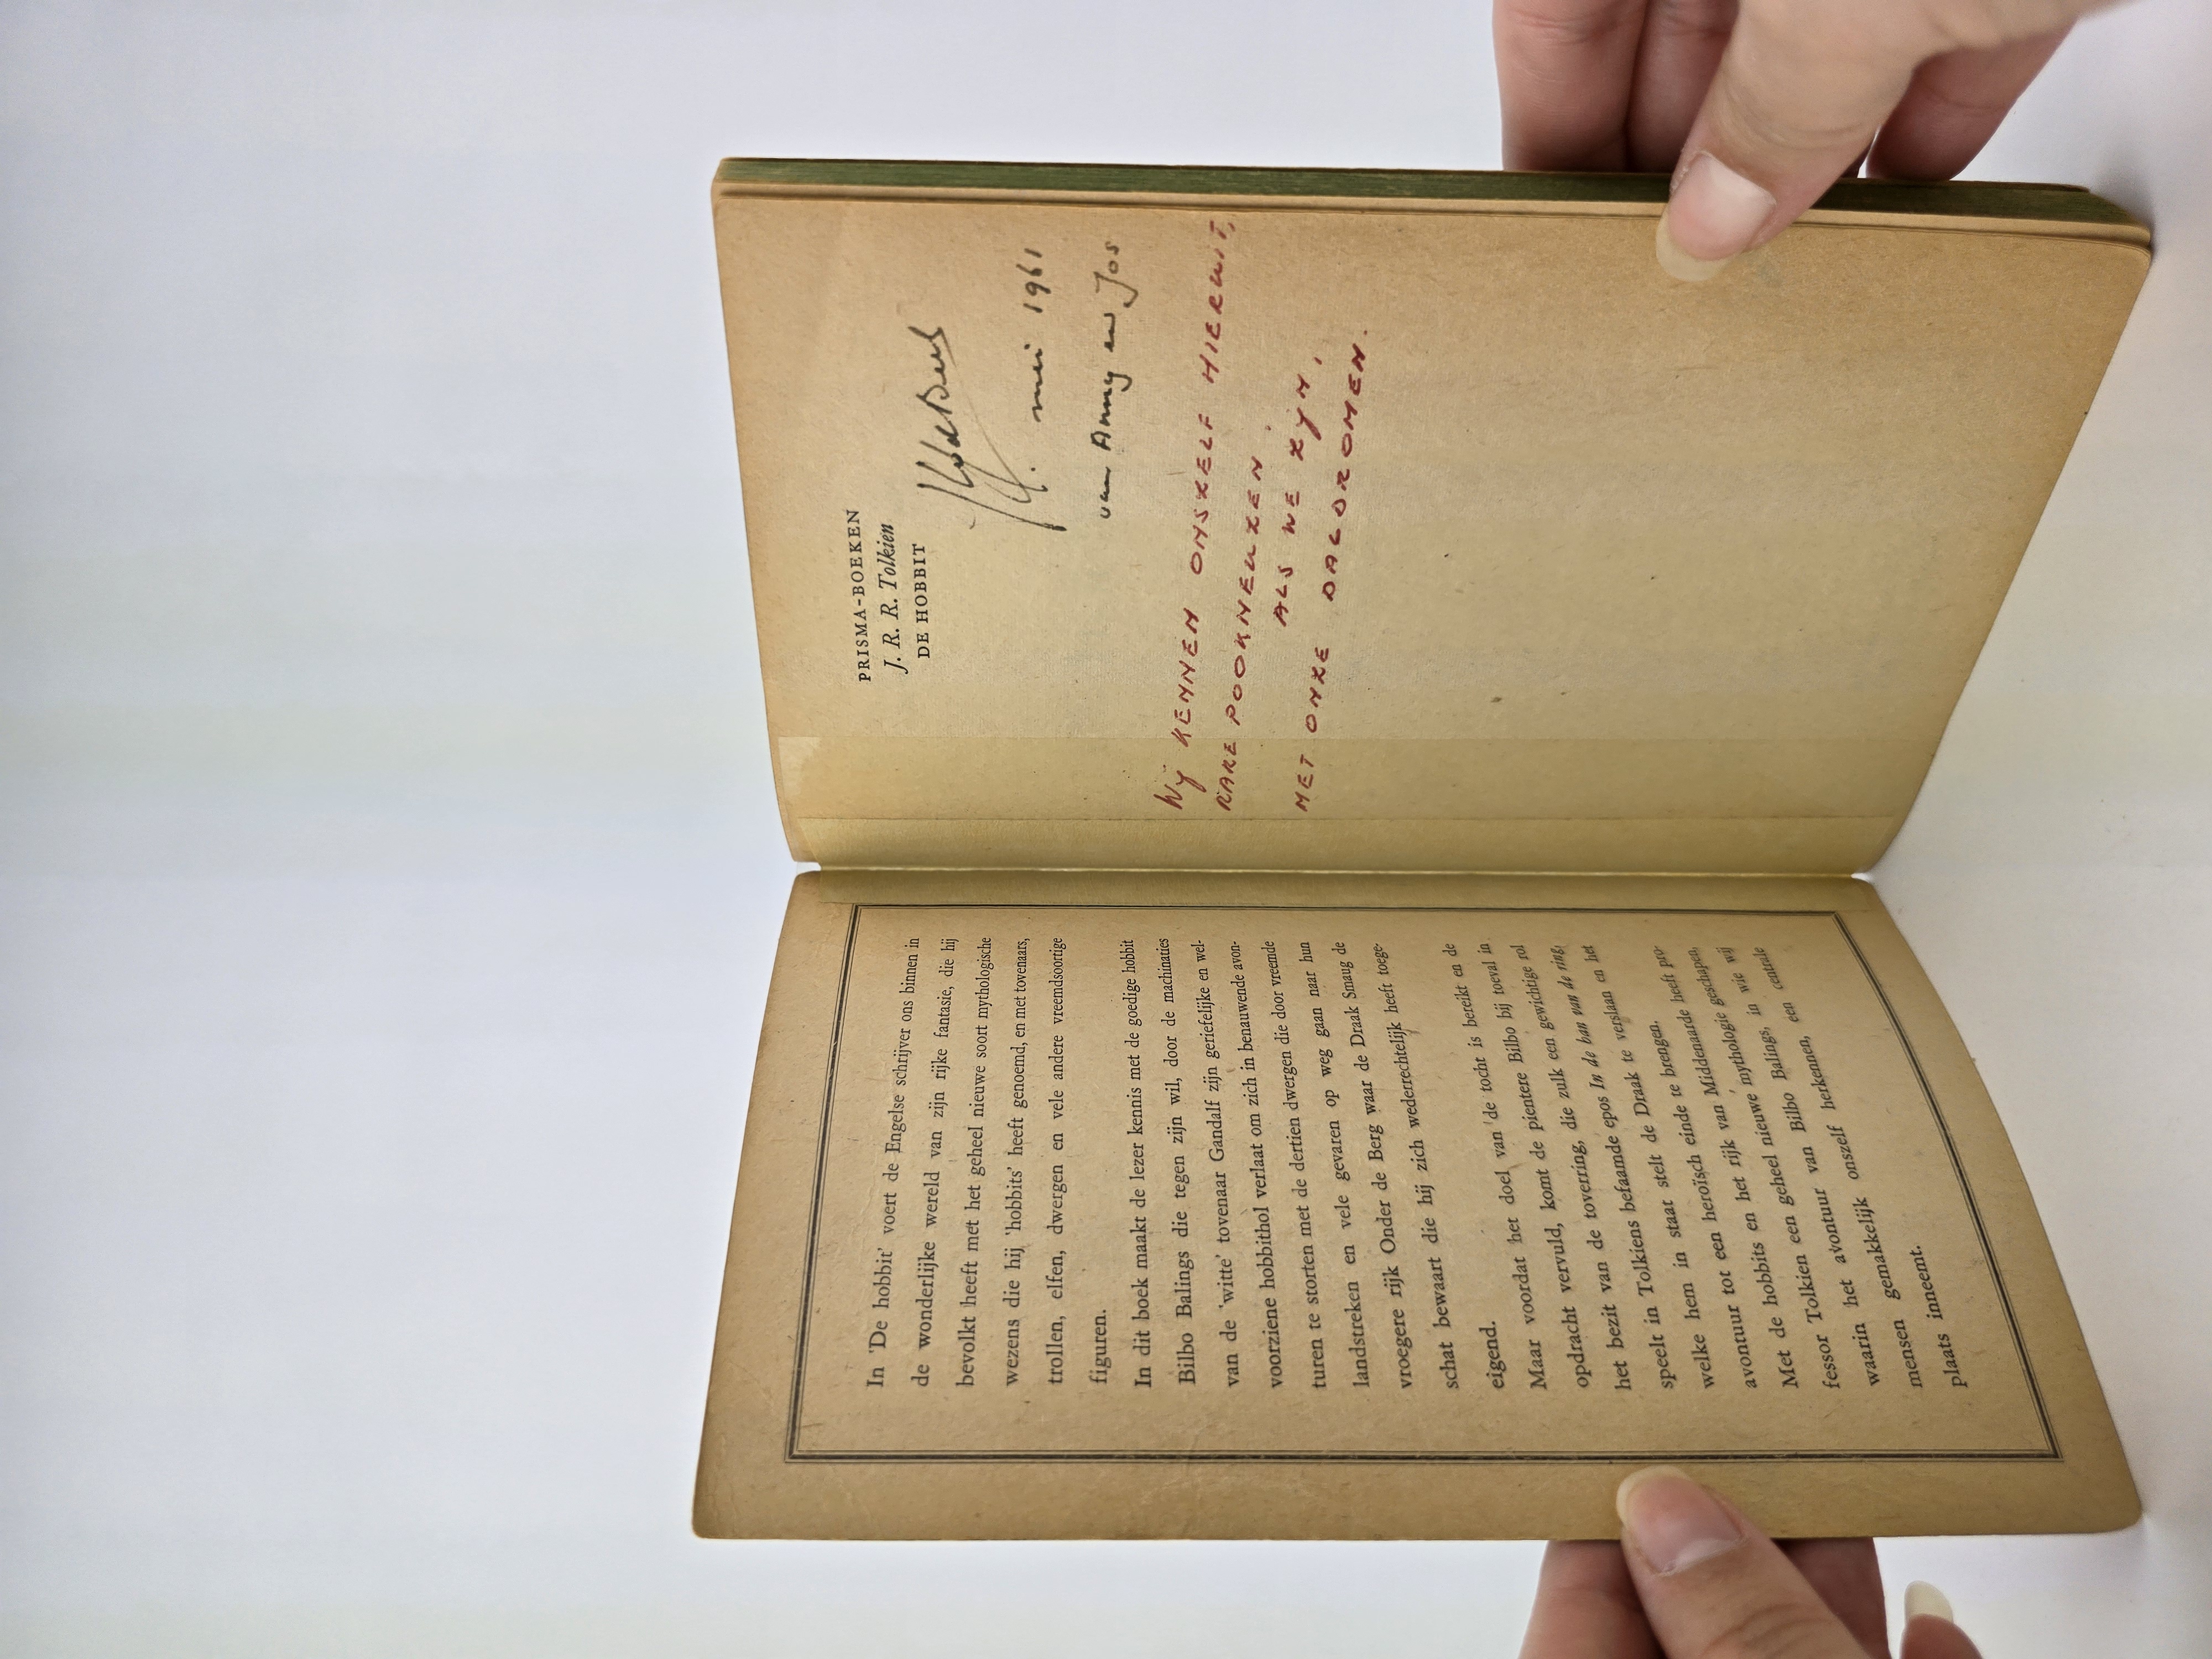 In 'De hobbit' voert de Engelse schrijver ons binnen in
de wonderlijke wereld van zijn rijke fantasie, die hij
bevolkt heeft met het geheel nieuwe soort mythologische
wezens die hij 'hobbits' heeft genoemd, en met tovenaars,
trollen, elfen, dwergen en vele andere vreemdsoortige
figuren.
In dit boek maakt de lezer kennis met de goedige hobbit
Bilbo Balings die tegen zijn wil, door de machinaties
van de 'witte' tovenaar Gandalf zijn geriefelijke en wel-
voorziene hobbithol verlaat om zich in benauwende avon-
turen te storten met de dertien dwergen die door vreemde
landstreken en vele gevaren op weg gaan naar hun
vroegere rijk Onder de Berg waar de Draak Smaug de
schat bewaart die hij zich wederrechtelijk heeft toege-
eigend.
Maar voordat het doel van de tocht is bereikt en de
opdracht vervuld, komt de pientere Bilbo bij toeval in
het bezit van de toverring, die zulk een gewichtige rol
speelt in Tolkiens befaamde epos In de ban van de ring,
welke hem in staat stelt de Draak te verslaan en het
avontuur tot een heroïsch einde te brengen.
Met de hobbits en het rijk van Middenaarde heeft pro-
fessor Tolkien een geheel nieuwe mythologie geschapen,
waarin het avontuur van Bilbo Balings, in wie wij
mensen gemakkelijk onszelf herkennen, een centrale
plaats inneemt.
PRISMA-BOEKEN
J. R. R. Tolkien
DE HOBBIT
mei 1961
van Anny en Jos
Wij KENNEN ONSZELF HIERUIT,
RARE POOKNEUZEN
ALS WE ZIJN,
MET ONZE DALDROMEN.